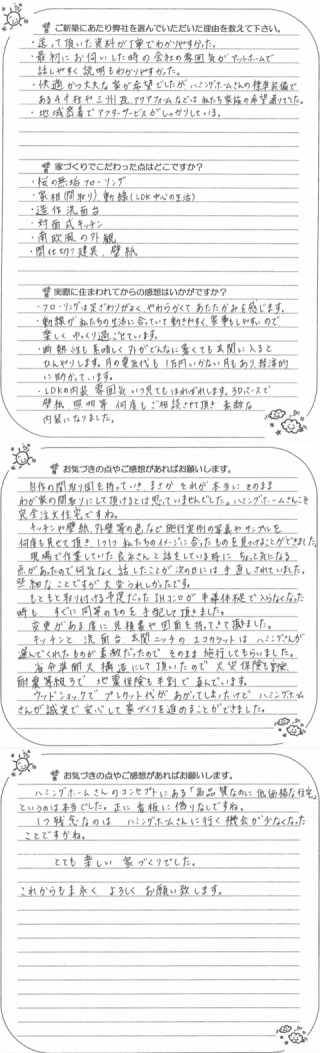 ご新築にあたり弊社を選んでいただいた理由を教えて下さい。
・送って頂いた資料が丁寧でわかりやすかった。
・最初にお伺いした時の会社の雰囲気がアットホームで
話しやすく説明もわかりやすかった。
・快適かつ丈夫な家が希望でしたが ハミングホームさんの標準装備で
ある4寸柱や三州瓦、アクアフォームなどは私たち家族の希望通りでした。
・地域密着でアフターサービスがしっかりしている。
家づくりでこだわった点はどこですか？
・桜の無垢フローリング
・家相(間取り)、動線(LDK中心の生活)
・造作洗面台
・対面式キッチン
・南欧風の外観
・間仕切り建具、壁紙
実際に住まわれてからの感想はいかがですか？
・フローリングは足ざわりがよく、やわらかくてあたたかみを感じます。
・動線が私たちの生活に合っていて動きやすく、家事もしやすいので
楽しくゆっくり過ごせています。
・断熱性も素晴しく外がどんなに暑くても玄関に入ると
ひんやりします。月の電気代も1万円いかない月もあり、経済的
に助かっています。
・LDKの内装、雰囲気 いつ見てもほれぼれします。3Dパースで
壁紙、照明等 何度もご相談させて頂き 素敵な
内装になりました。
お気づきの点やご感想があればお願いします。
自作の間取り図を持っていき まさか それが本当に そのまま
わが家の間取りにして頂けるとは思っていませんでした。ハミングホームさんこそ
完全注文住宅ですね。
キッチンや壁紙、外壁等の色など 施行実例の写真やサンプルを
何度も見せて頂き、1つ1つ私たちのイメージに合ったものを見つけることができました。
現場で作業していた良永さんと話をしている時に ちょっと気になる
点があったので何気なく話したことが次の日には手直しされていました。
些細なことですが大変うれしかったです。
もともと取り付ける予定だったIHコンロが半導体不足で入らなくなった
時も すぐに同等のものを手配して頂きました。
変更がある度に見積書や図面を持ってきて頂きました。
キッチンと洗面台、玄関ニッチのエコカラットは ハミングさんが
選んでくれたものが素敵だったので そのまま施行してもらいました。
省令準耐火構造にして頂いたので 火災保険も割安、
耐震等級3で 地震保険も半割で喜んでいます。
ウッドショックで プレカット代があがってしまったけど ハミングホーム
さんが誠実で安心して家づくりを進めることができました。
お気づきの点やご感想があればお願いします。
ハミングホームさんのコンセプトにある「高品質なのに低価格な住宅」
というのは本当でした。正に看板に偽りなしですね。
1つ残念なのは ハミングホームさんに行く機会が少なくなった
ことですかね。
とても楽しい家づくりでした。
これからも末永く よろしく お願い致します。